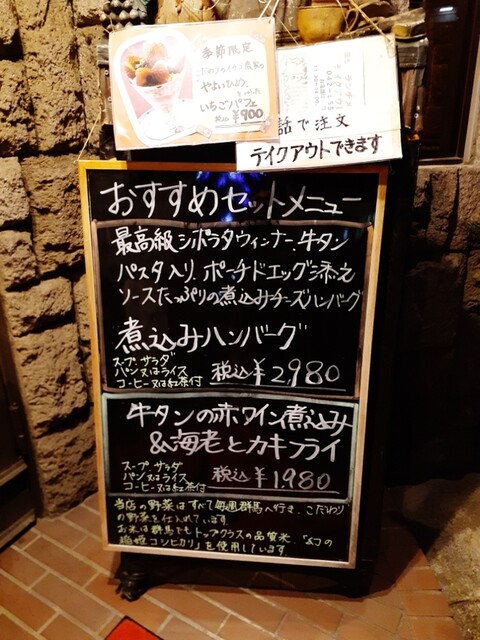 季節限定
こだわり
"やよいひめ"
いちごパフェ
税込 ¥900
話で注文
テイクアウトできます
おすすめセットメニュー
最高級シボラタウィンナー、牛タン
パスタ入り、ポーチドエッグ添え
ソースたっぷりの煮込みチーズハンバーグ
煮込みハンバーグ
スープ、サラダ
パン又はライス
コーヒー又は紅茶付
税込 ¥2,980
牛タンの赤ワイン煮込み
&海老とカキフライ
スープ、サラダ
パン又はライス
コーヒー又は紅茶付
税込 ¥1,980
当店の野菜はすべて毎週群馬へ行き、こだわり
の野菜を仕入れています。
お米は群馬でもトップクラスの品質米、
コシヒカリ」を使用しています